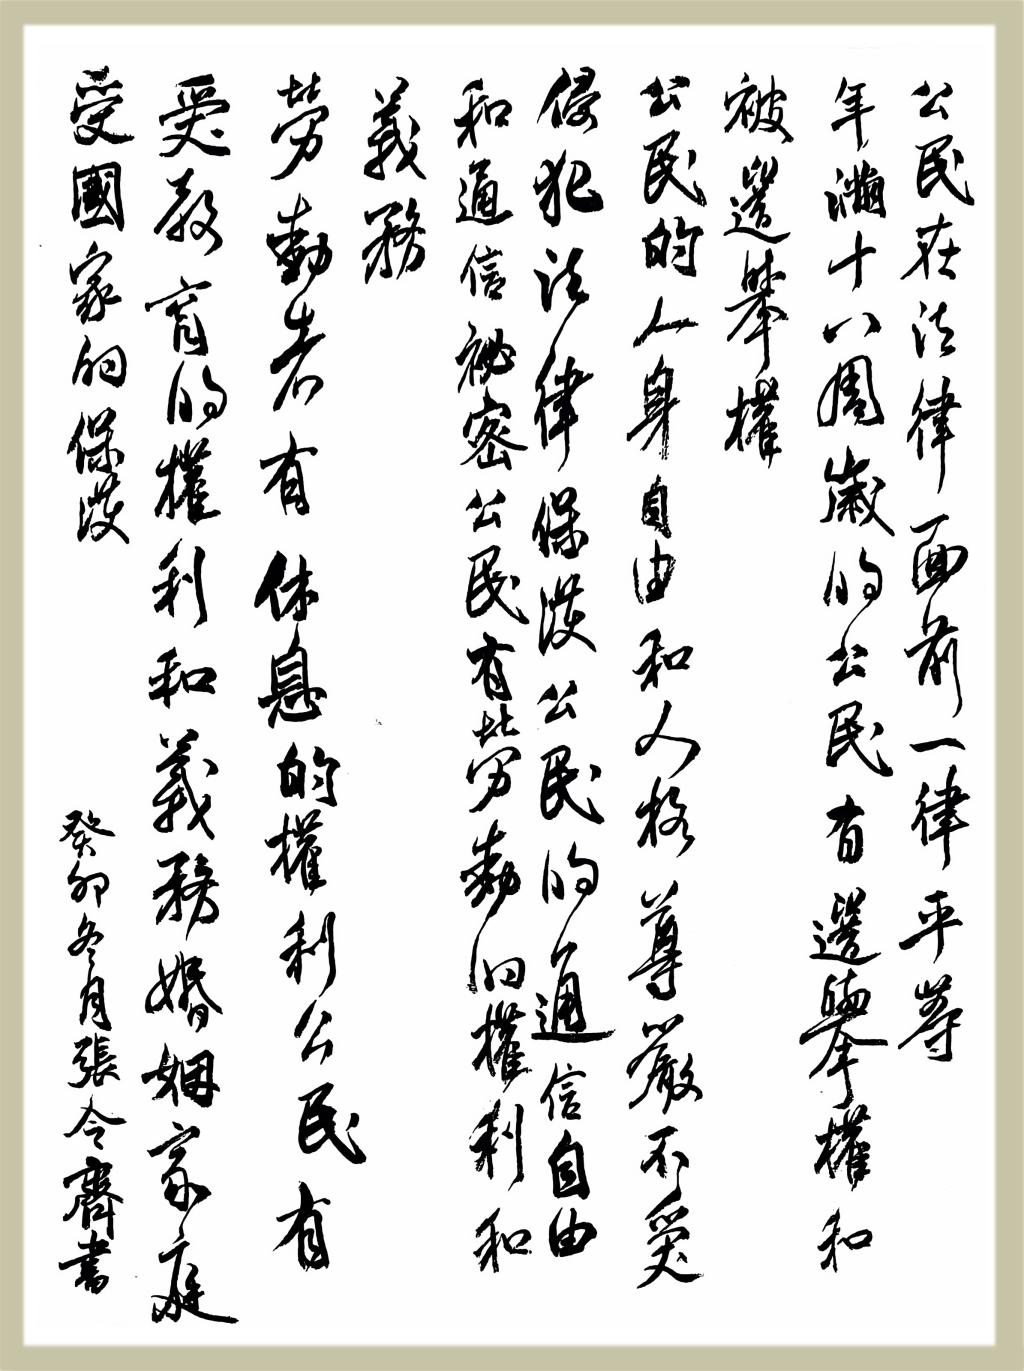 公民在法律面前一律平等
年滿十八周歲的公民有選舉權和
被選舉權
公民的人身自由和人格尊嚴不受
侵犯法律保護公民的通信自由
和通信祕密公民有勞動的權利和
義務
勞動者有休息的權利公民有
受教育的權利和義務婚姻家庭
受國家的保護
癸卯冬月張令齊書